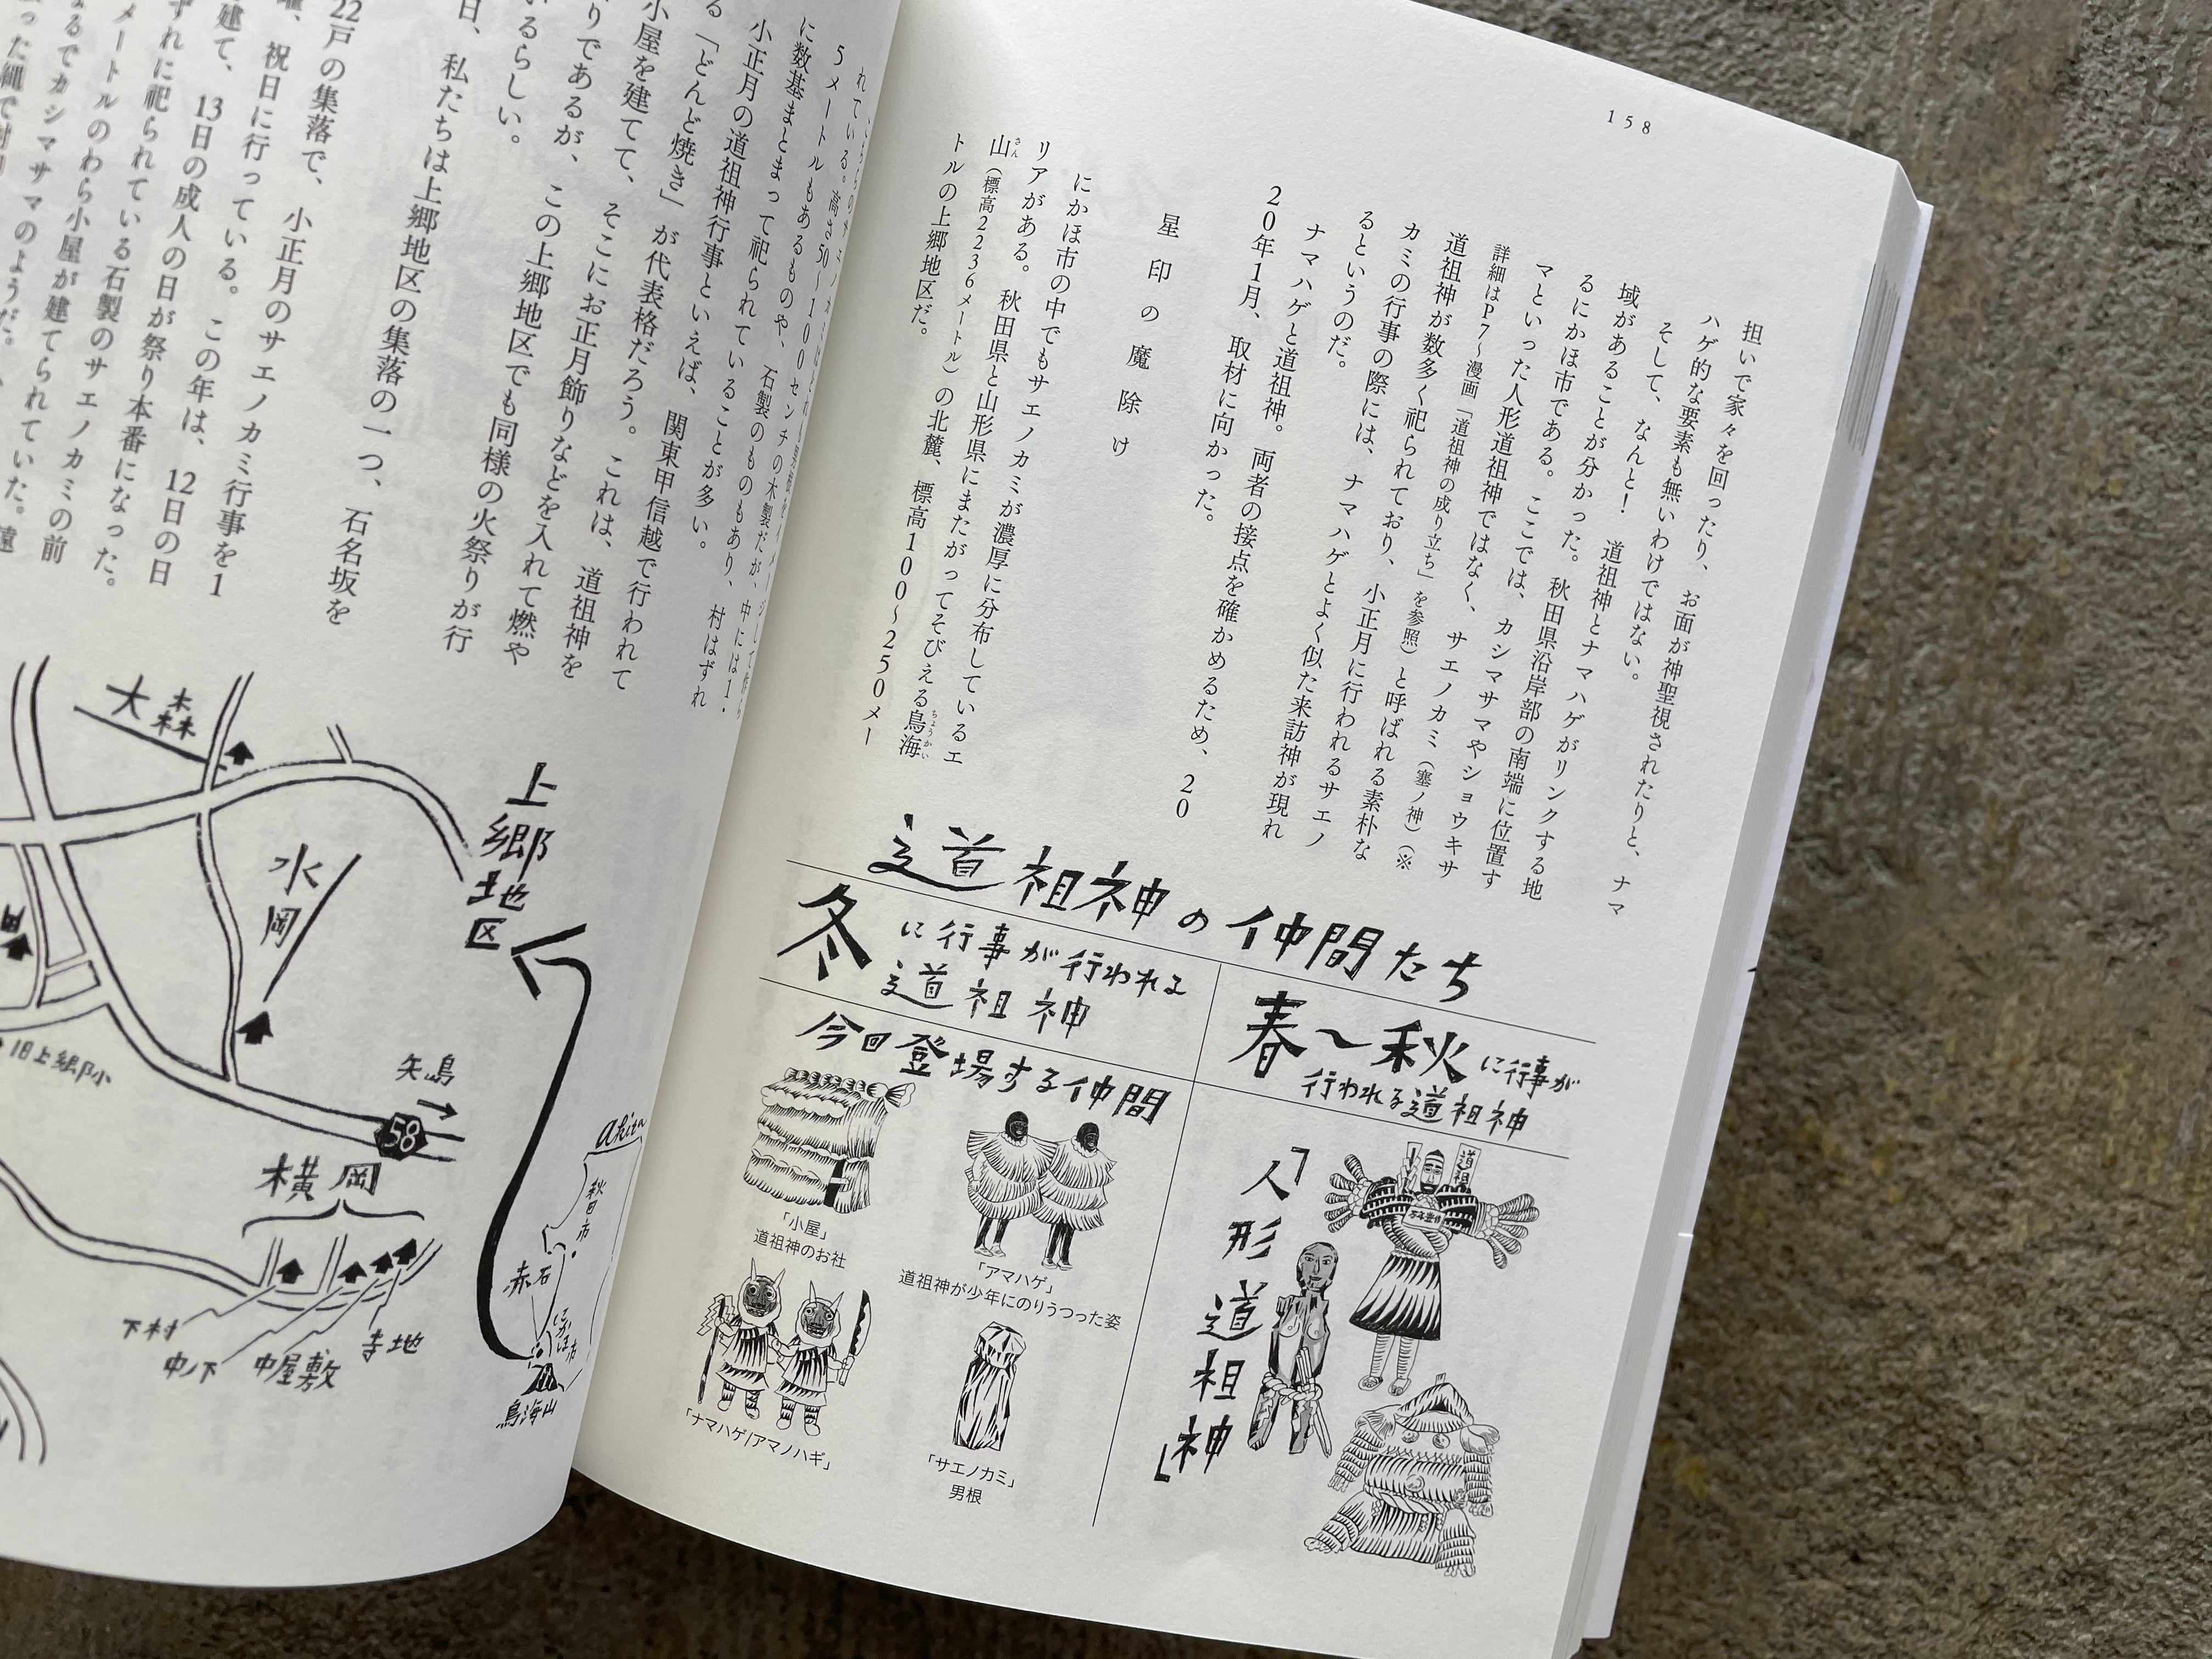 158
担いで家々を回ったり、お面が神聖視されたりと、ナマ
ハゲ的な要素も無いわけではない。
そして、なんと！ 道祖神とナマハゲがリンクする地
域があることが分かった。秋田県沿岸部の南端に位置す
るにかほ市である。ここでは、カシマサマやショウキサ
マといった人形道祖神ではなく、サエノカミ（塞ノ神）（※
詳細はP7～漫画「道祖神の成り立ち」を参照）と呼ばれる素朴な
道祖神が数多く祀られており、小正月に行われるサエノ
カミの行事の際には、ナマハゲとよく似た来訪神が現れ
るというのだ。
ナマハゲと道祖神。両者の接点を確かめるため、20
20年1月、取材に向かった。
星印の魔除け
にかほ市の中でもサエノカミが濃厚に分布しているエ
リアがある。秋田県と山形県にまたがってそびえる鳥海
ちょうかい
山（標高2236メートル）の北麓、標高100～250メー
さん
トルの上郷地区だ。
道祖神の仲間たち
冬に行事が行われる
道祖神
今回登場する仲間
「小屋」
道祖神のお社
「アマハゲ」
道祖神が少年にのりうつった姿
「ナマハゲ/アマノハギ」
「サエノカミ」
男根
春～秋に行事が
行われる道祖神
「人形道祖神」
道祖
れている。高さ50～100センチの木製だが、中には1・
5メートルもあるものや、石製のものもあり、村はずれ
に数基まとまって祀られていることが多い。
小正月の道祖神行事といえば、関東甲信越で行われて
る「どんど焼き」が代表格だろう。これは、道祖神を
小屋を建てて、そこにお正月飾りなどを入れて燃や
りであるが、この上郷地区でも同様の火祭りが行
いるらしい。
日、私たちは上郷地区の集落の一つ、石名坂を
22戸の集落で、小正月のサエノカミ行事を1
祝日に行っている。この年は、12日の日
建て、13日の成人の日が祭り本番になった。
ずれに祀られている石製のサエノカミの前
メートルのわら小屋が建てられていた。遠
るでカシマサマのようだ。
った縄で
大森
上郷地区
水岡
旧上郷小
矢島
58
横岡
下村
中ノ下
中屋敷
寺地
Akita
秋田市
赤石
にかほ市
鳥海山